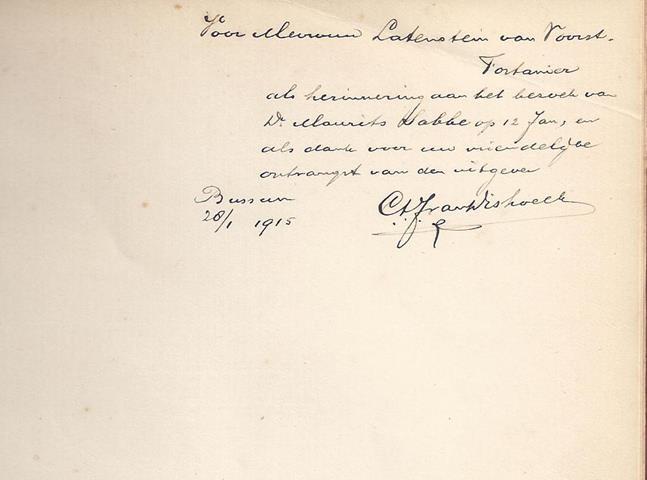 Voor Mevrouw Latenstein van Voorst-
Fortanier
als herinnering aan het bezoek van
Dr Maurits Sabbe op 12 Jan, en
als dank voor uw vriendelijke
ontvangst van den uitgever
Bussum
28/1 1915
C.A.J. van Dishoeck